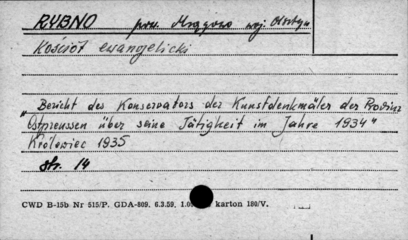 RYBNO pow. Mrągowo woj. Olsztyn
Kościół ewangelicki
"Bericht des Konservators der Kunstdenkmäler der Provinz
Ostpreussen über seine Tätigkeit im Jahre 1934"
Królewiec 1935
str. 14
CWD B-15b Nr 515/P. GDA-809. 6.3.59, karton 180/V.